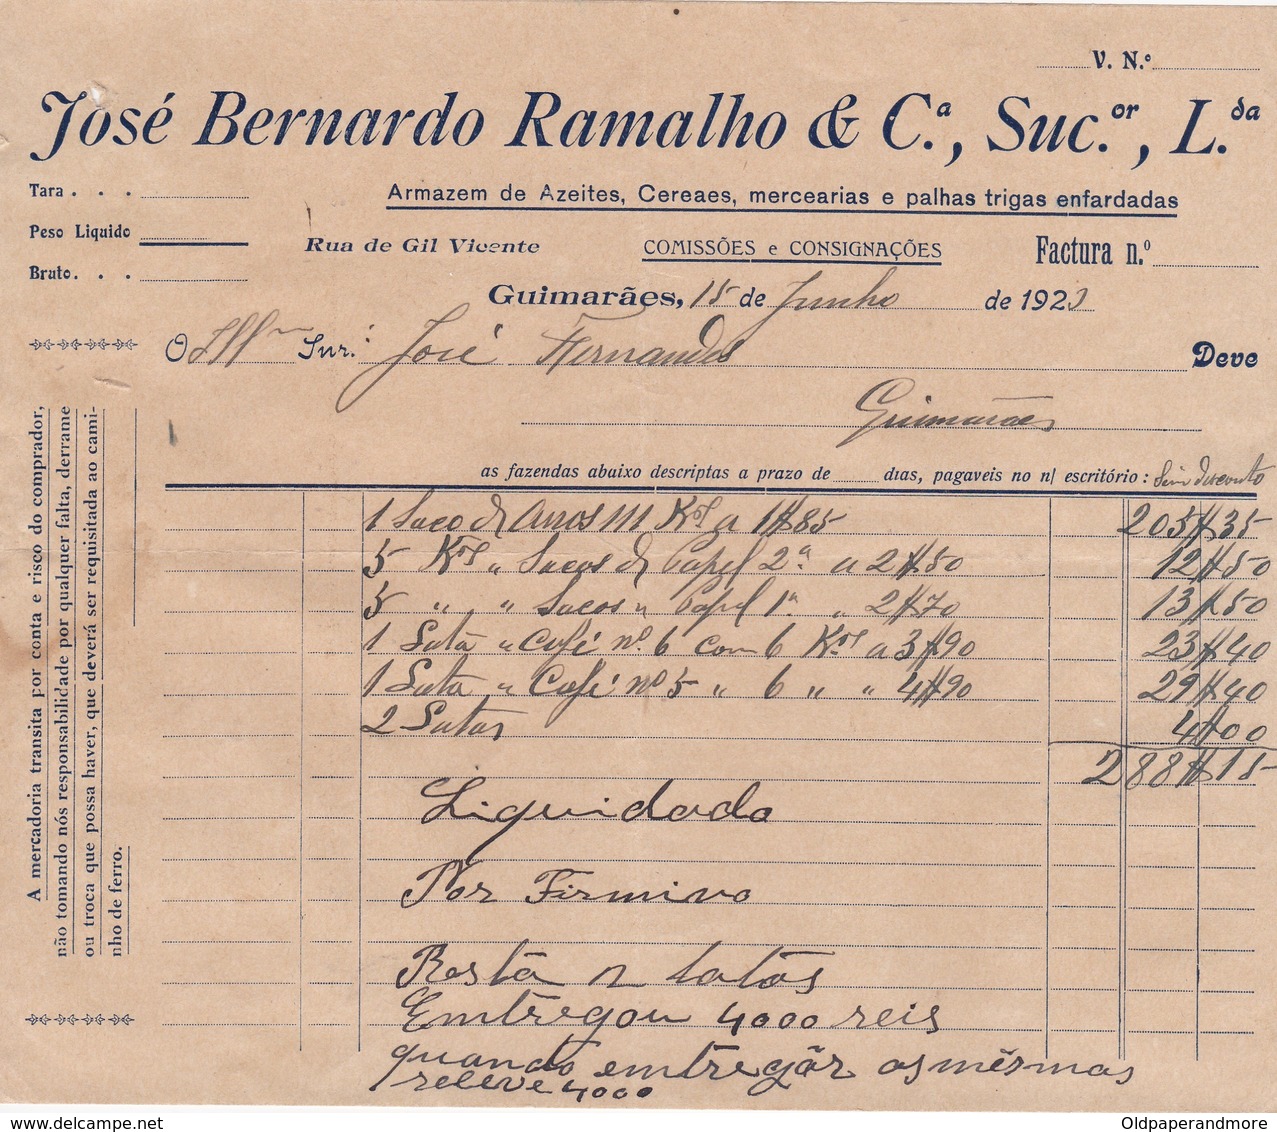 V. N.º
José Bernardo Ramalho & C.ª, Suc.or, L.da
Tara . . .
Armazem de Azeites, Cereaes, mercearias e palhas trigas enfardadas
Peso Liquido
Rua de Gil Vicente COMISSÕES e CONSIGNAÇÕES Factura n.º
Bruto. . .
Guimarães, 15 de Junho de 1923
O Illmo Snr. José Fernandes Deve
Guimarães
as fazendas abaixo descriptas a prazo de dias, pagaveis no n/ escritório: Sem desconto
1 Saco d' arros 111 Kos a 1$85 205$35
5 Kos " Sacos d' Papel 2ª a 2$50 12$50
5 " " Sacos " Papel 1ª " 2$70 13$50
1 Lata " Café nº 6 com 6 Kos a 3$90 23$40
1 Lata " Café nº 5 " 6 " " 4$90 29$40
2 Latas 4$00
288$15
Liquidado
Por Firmino
Resta 2 latas
Emtregou 4000 reis
quando emtregár as mesmas
releve 4000
A mercadoria transita por conta e risco do comprador,
não tomando nós responsabilidade por qualquer falta, derrame
ou troca que possa haver, que deverá ser requisitada ao cami-
nho de ferro.
Oldpaperandmore